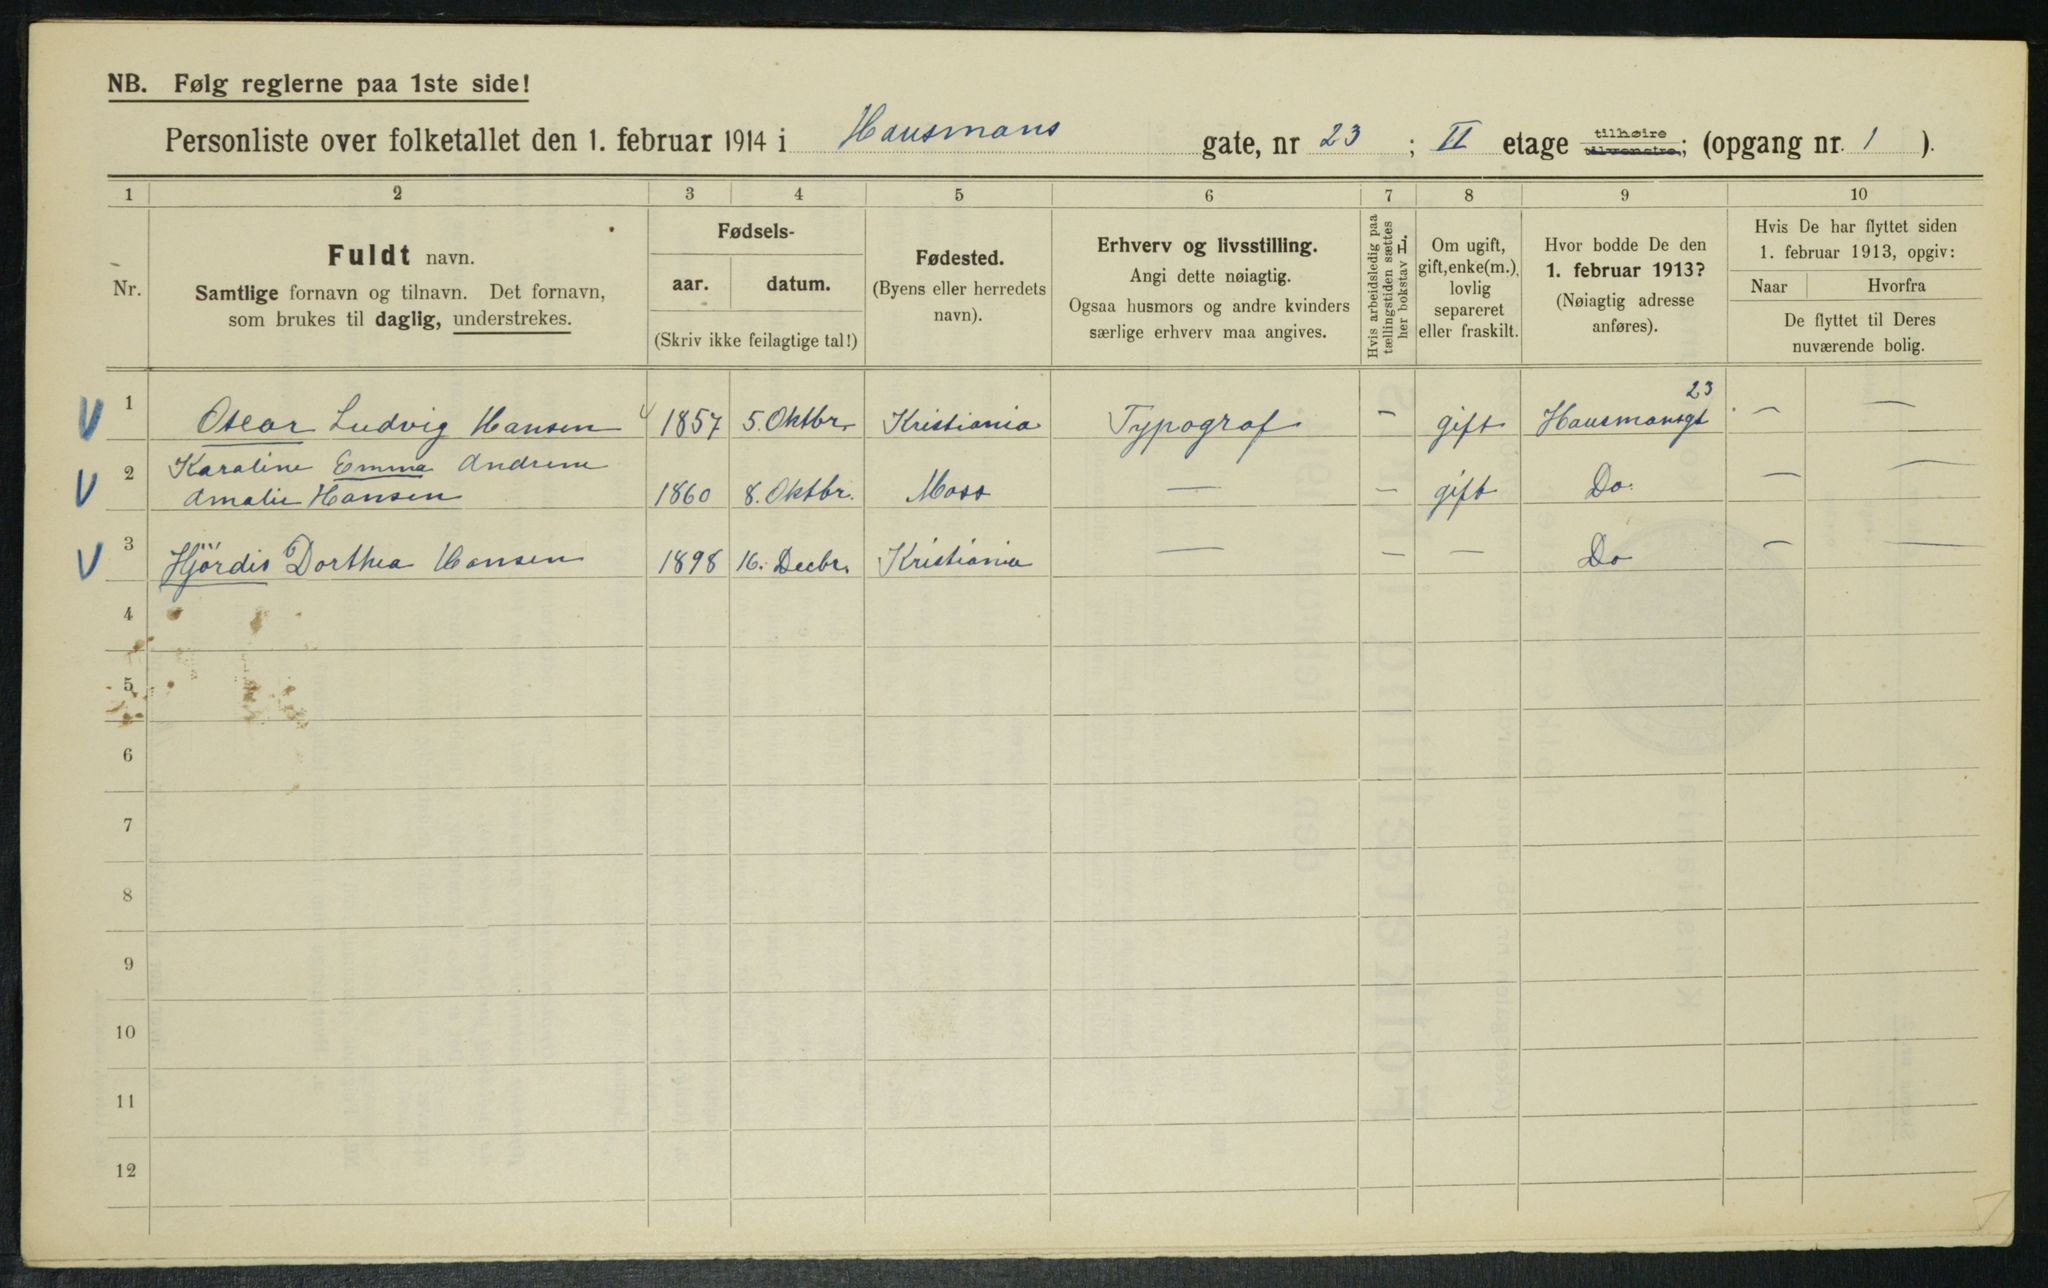 NB. Følg reglerne paa 1ste side!
Personliste over folketallet den 1. februar 1914 i Hausmans gate, nr 23 ; II etage tilhøire tilvenstre; (opgang nr. 1 ).
1 2 3 4 5 6 7 8 9 10
Nr.
Fuldt navn.
Samtlige fornavn og tilnavn. Det fornavn,
som brukes til daglig, understrekes.
Fødsels-
aar. datum.
(Skriv ikke feilagtige tal!)
Fødested.
(Byens eller herredets
navn).
Erhverv og livsstilling.
Angi dette nøiagtig.
Ogsaa husmors og andre kvinders
særlige erhverv maa angives.
Hvis arbeidsledig paa
tællingstiden sættes
her bokstav L.
Om ugift,
gift, enke(m.),
lovlig
separeret
eller fraskilt.
Hvor bodde De den
1. februar 1913?
(Nøiagtig adresse
anføres).
Hvis De har flyttet siden
1. februar 1913, opgiv:
Naar Hvorfra
De flyttet til Deres
nuværende bolig.
V 1 Oscar Ludvig Hansen 1857 5. Oktbr. Kristiania Typograf — gift Hausmansgt 23 — —
V 2 Karaline Emma Andrine
Amalie Hansen 1860 8. Oktbr. Moss — — gift Do. — —
V 3 Hjördis Dorthea Hansen 1898 16. Decbr. Kristiania — — — Do — —
4
5
6
7
8
9
10
11
12